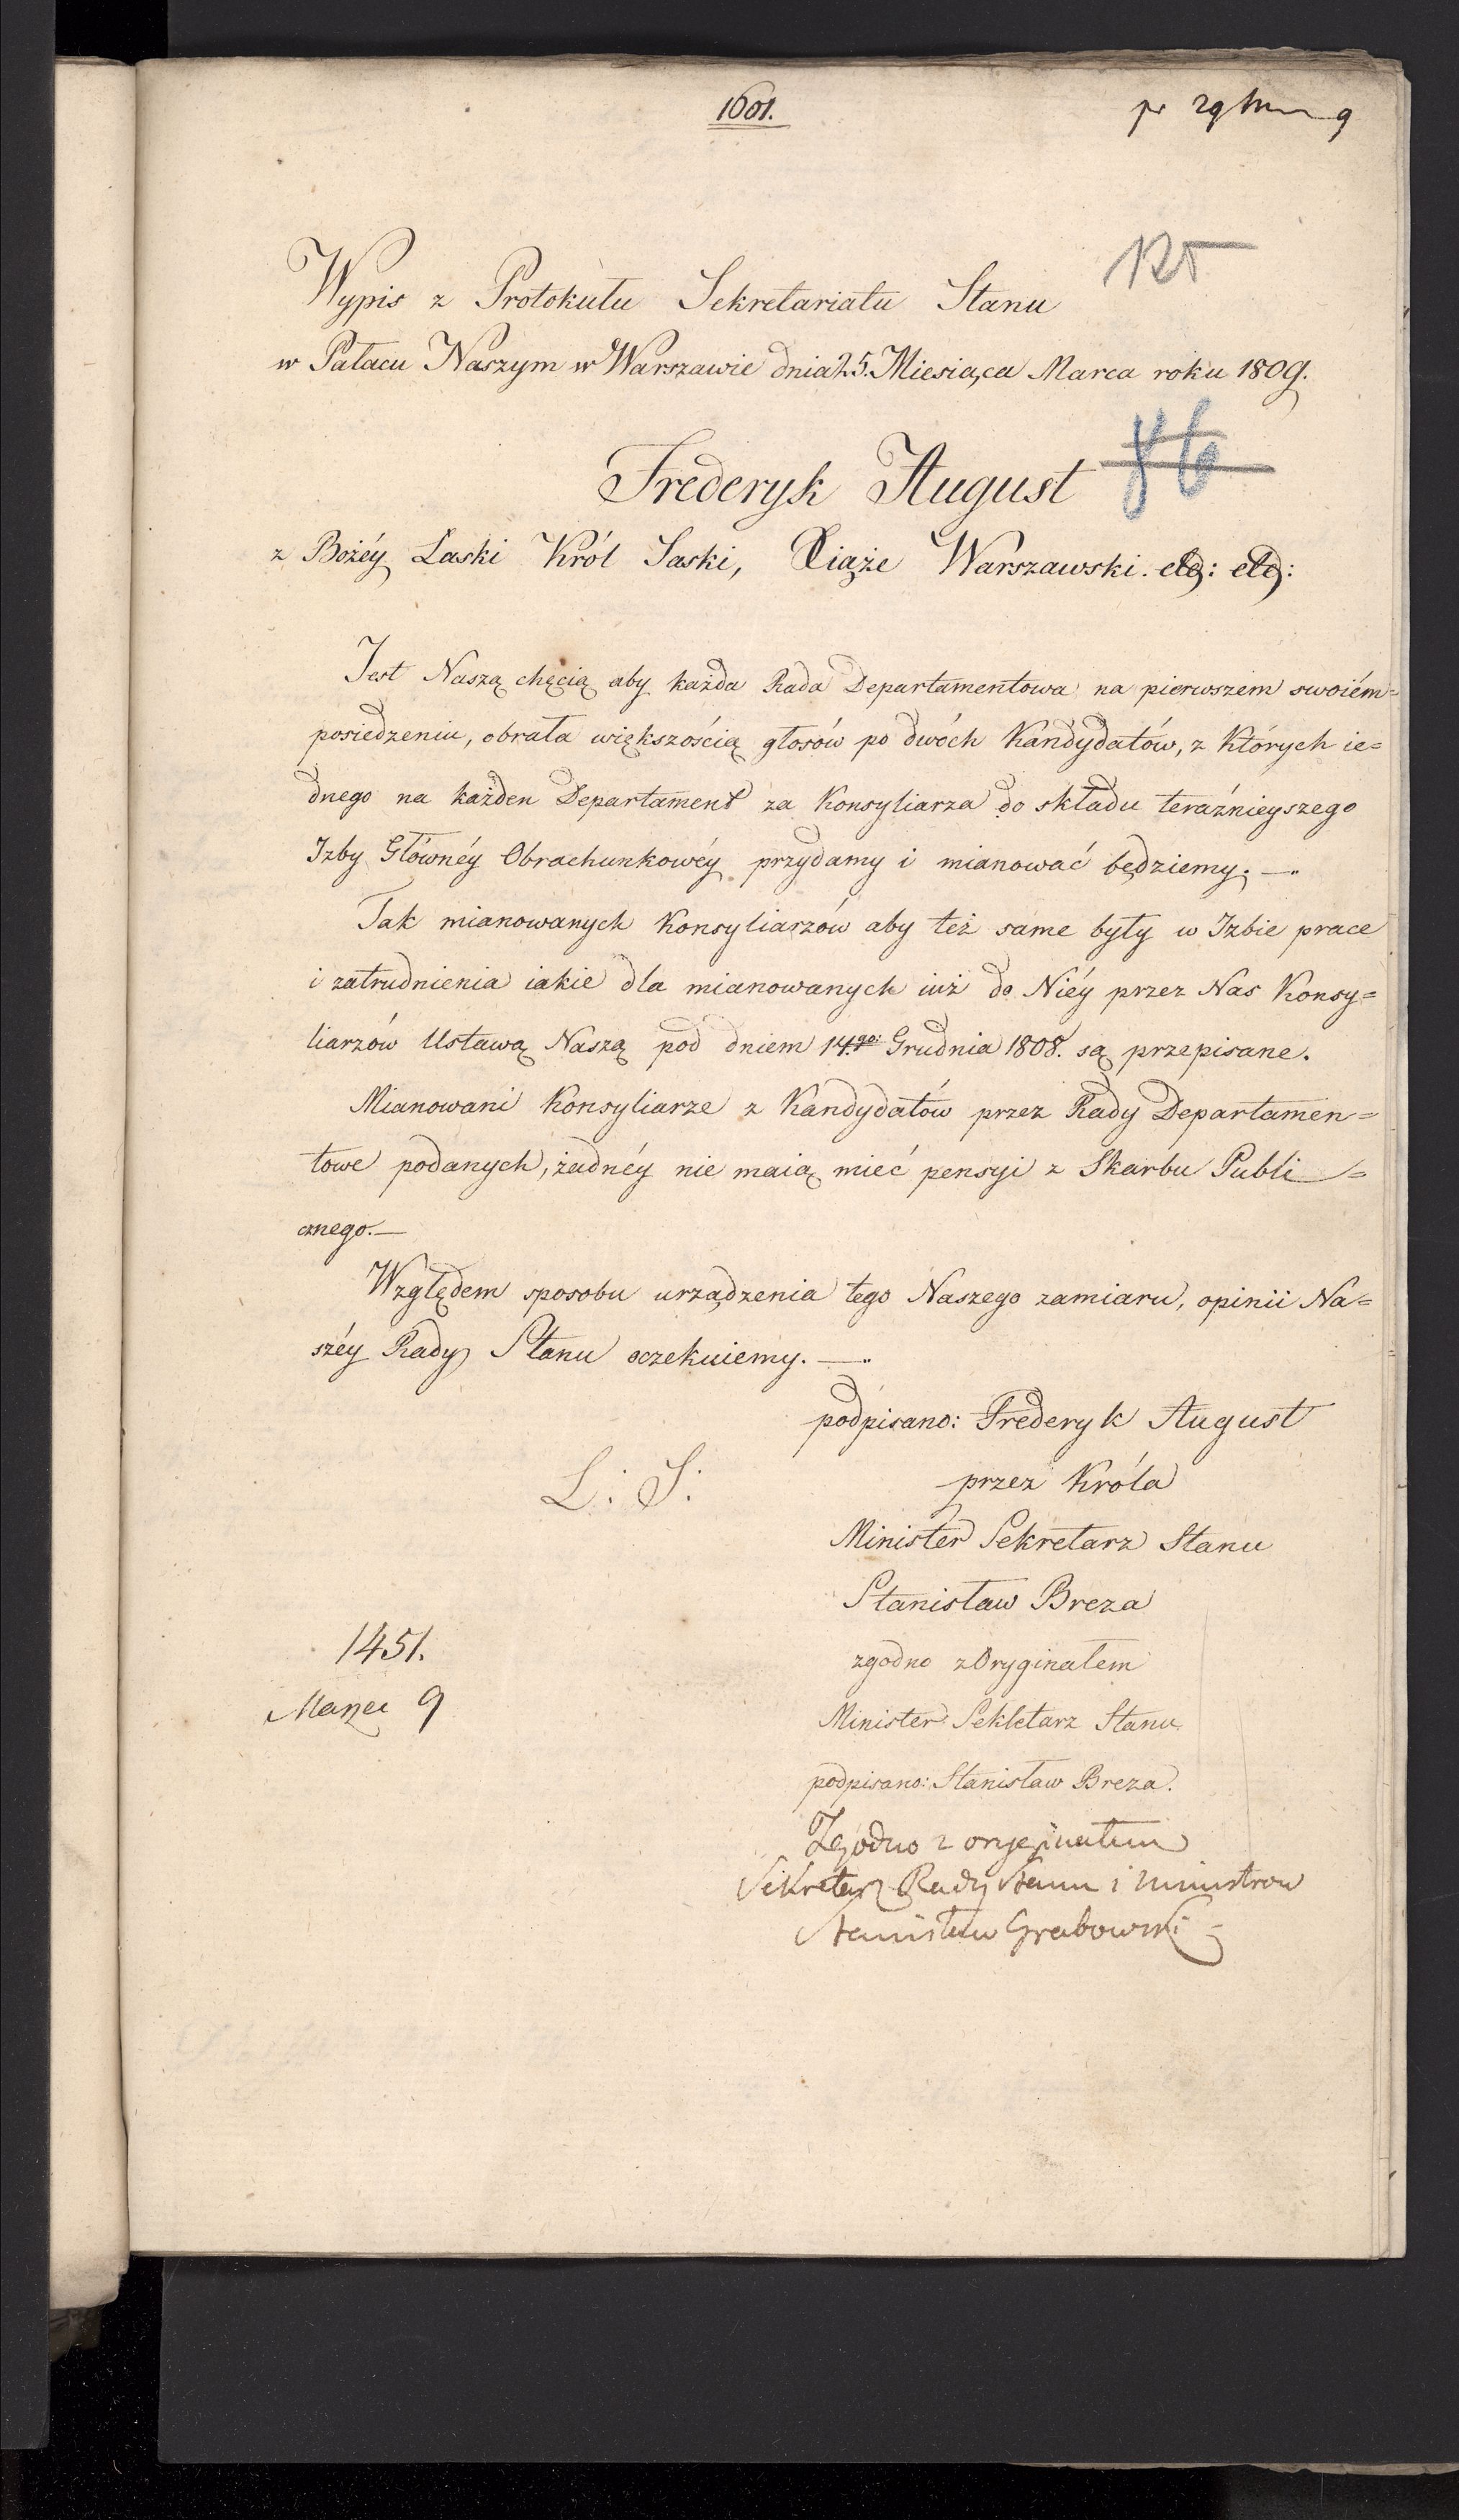 1601.
pr 29 9
125
Wypis z Protokułu Sekretariatu Stanu
w Pałacu Naszym w Warszawie dnia 25. Miesiąca Marca roku 1809.
Frederyk August
86
z Bożéy Łaski Król Saski, Xiąże Warszawski. etc: etc:
Jest Naszą chęcią aby każda Rada Departamentowa na pierwszem swoiém=
posiedzeniu, obrała większością głosów po dwóch Kandydatów, z których ie=
dnego na każden Departament za Konsyliarza do składu teraźnieyszego
Izby Głównéy Obrachunkowéy przydamy i mianować będziemy. —
Tak mianowanych Konsyliarzów aby też same były w Izbie prace
i zatrudnienia iakie dla mianowanych iuż do Niéy przez Nas Konsy=
liarzów Ustawą Naszą pod dniem 14.go: Grudnia 1808. są przepisane.
Mianowani Konsyliarze z Kandydatów przez Rady Departamen=
towe podanych, żadnéy nie maią mieć pensyi z Skarbu Publi=
cznego.—
Względem sposobu urządzenia tego Naszego zamiaru, opinii Na=
széy Rady Stanu oczekuiemy. —
podpisano: Frederyk August
L: S:
przez Króla
Minister Sekretarz Stanu
Stanisław Breza
zgodno z Oryginałem
Minister Sekletarz Stanu
podpisano: Stanisław Breza.
1451.
Marzec 9
Zgodno z oryginałem
Sekretarz Rady Stanu i Ministrow
Stanisław Grabowski